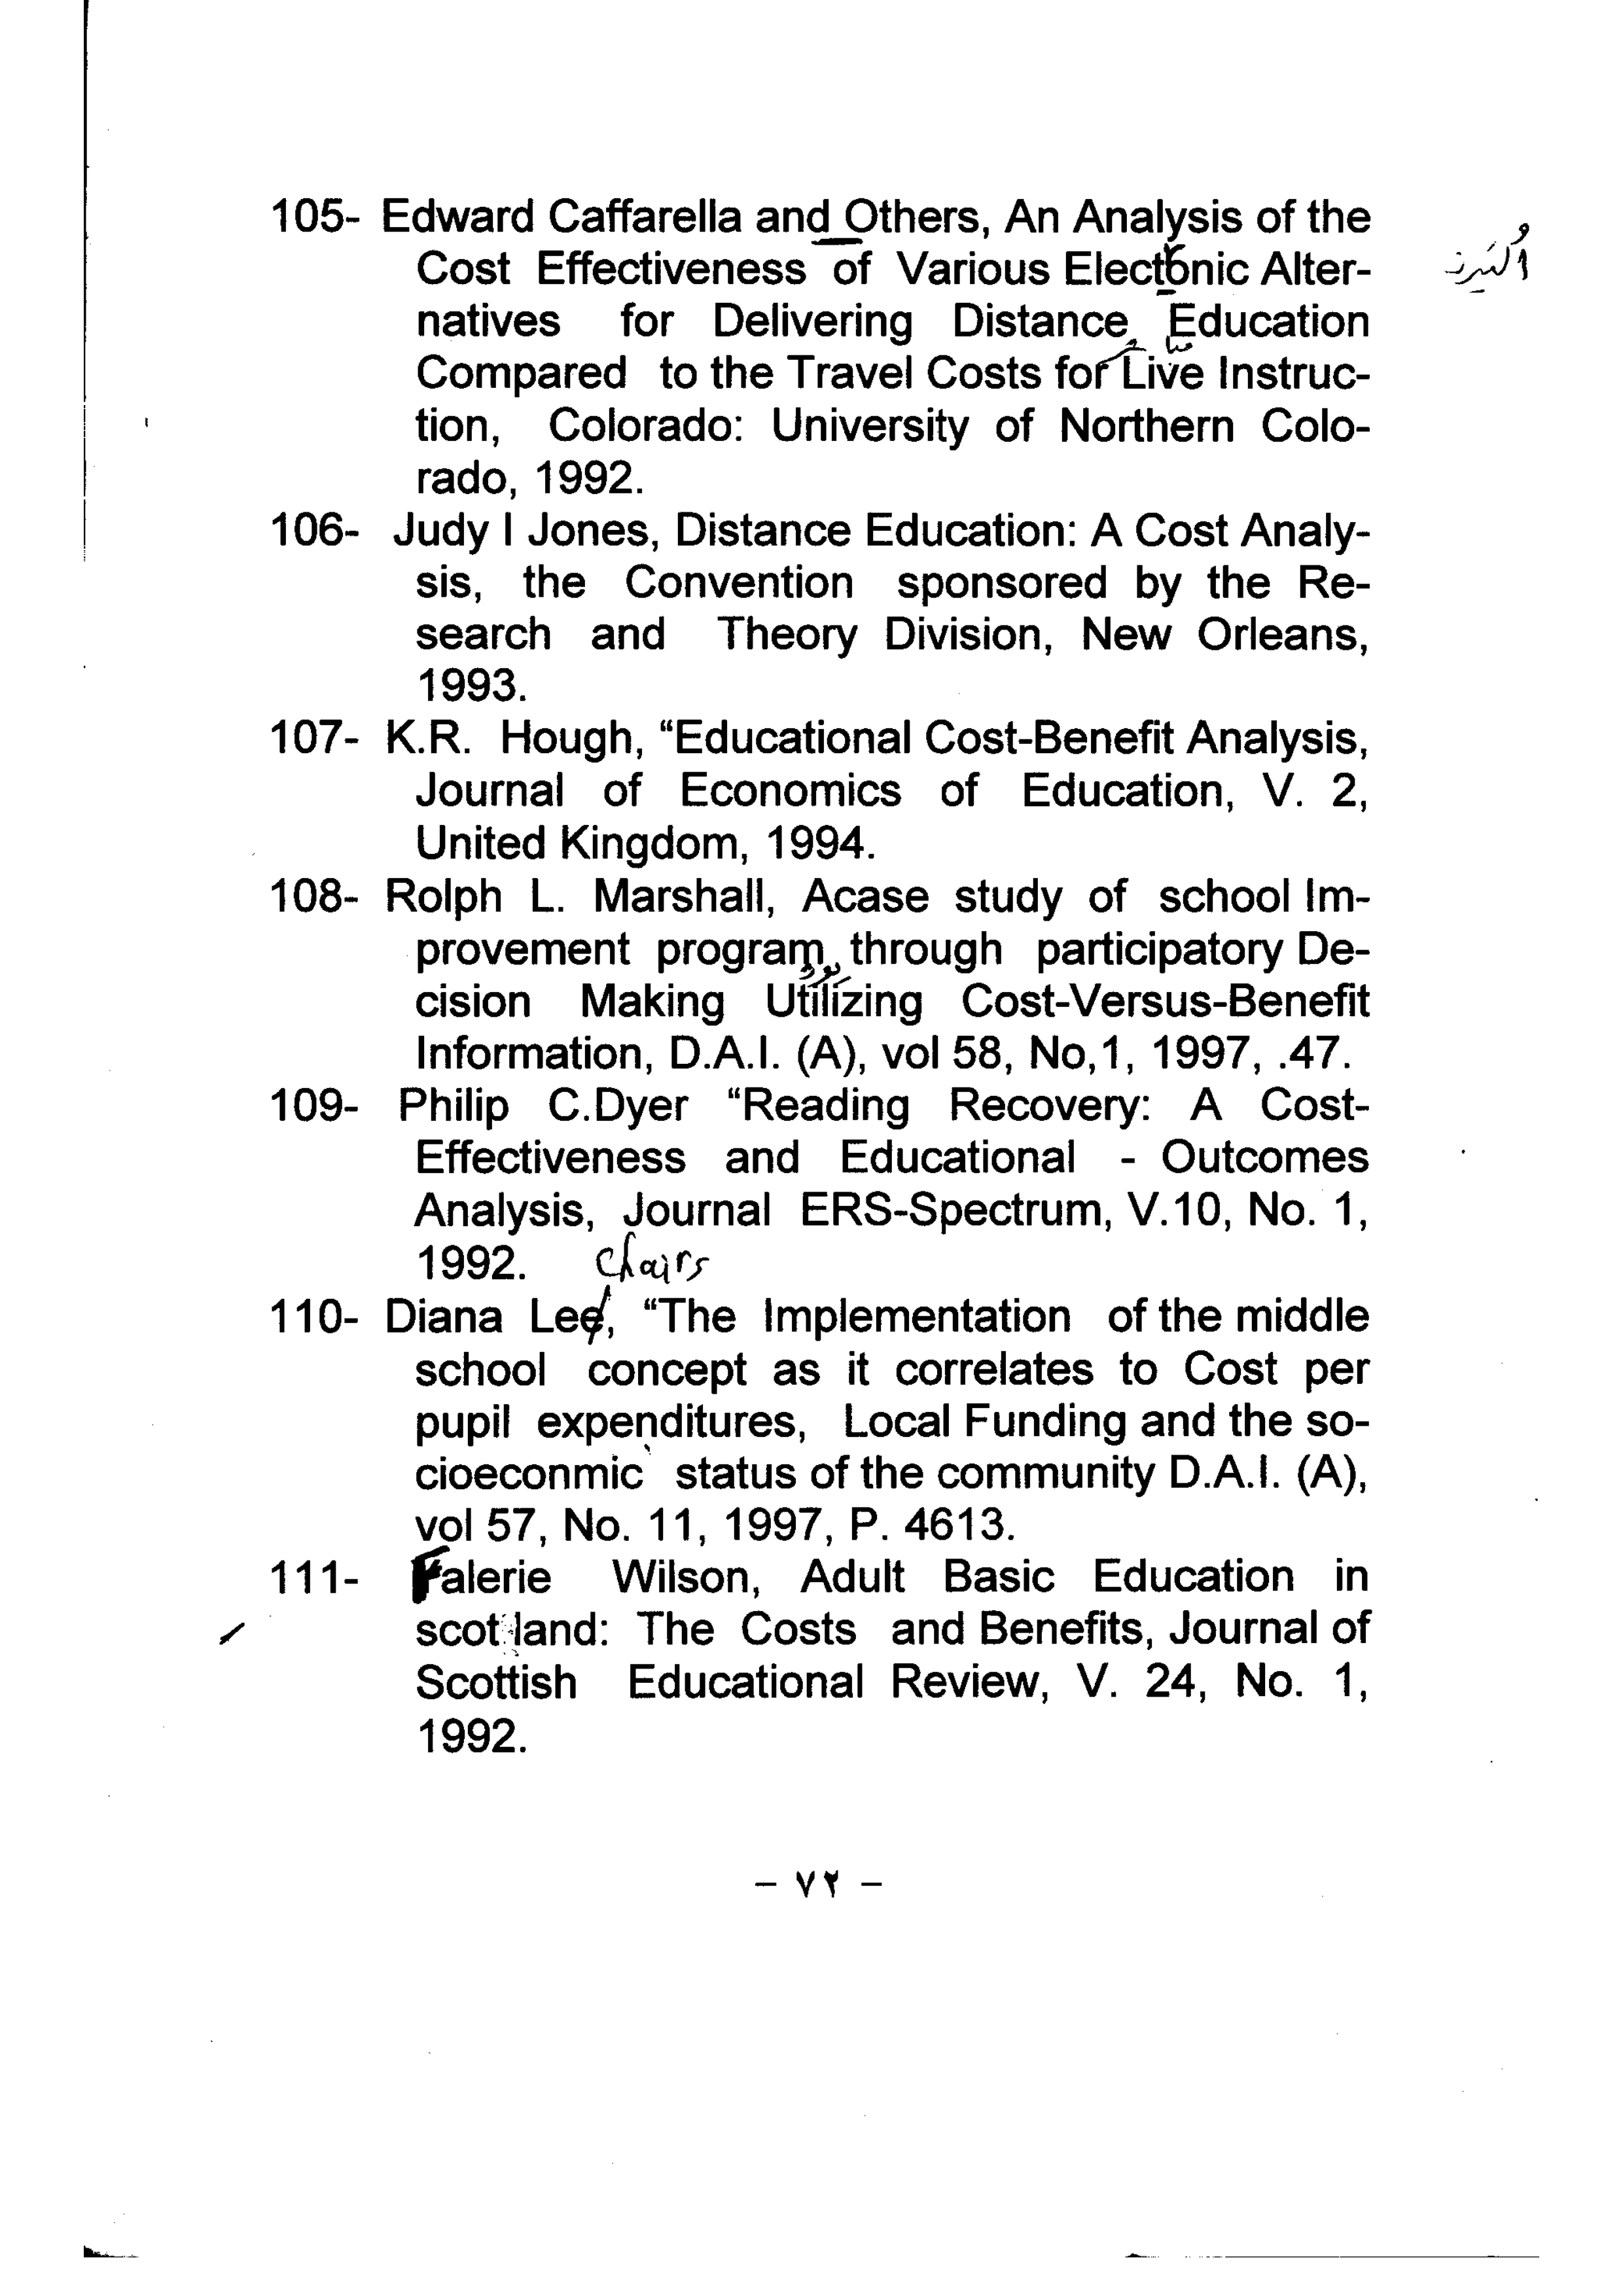 105- Edward Caffarella and Others, An Analysis of the
Cost Effectiveness of Various Electronic Alter-
natives for Delivering Distance Education
Compared to the Travel Costs for Live Instruc-
tion, Colorado: University of Northern Colo-
rado, 1992.
106- Judy I Jones, Distance Education: A Cost Analy-
sis, the Convention sponsored by the Re-
search and Theory Division, New Orleans,
1993.
107- K.R. Hough, “Educational Cost-Benefit Analysis,
Journal of Economics of Education, V. 2,
United Kingdom, 1994.
108- Rolph L. Marshall, Acase study of school Im-
provement program through participatory De-
cision Making Utilizing Cost-Versus-Benefit
Information, D.A.I. (A), vol 58, No,1, 1997, .47.
109- Philip C.Dyer “Reading Recovery: A Cost-
Effectiveness and Educational - Outcomes
Analysis, Journal ERS-Spectrum, V.10, No. 1,
1992. Chairs
110- Diana Lee, “The Implementation of the middle
school concept as it correlates to Cost per
pupil expenditures, Local Funding and the so-
cioeconmic status of the community D.A.I. (A),
vol 57, No. 11, 1997, P. 4613.
111- Falerie Wilson, Adult Basic Education in
scotland: The Costs and Benefits, Journal of
Scottish Educational Review, V. 24, No. 1,
1992.
– ٧٢ –